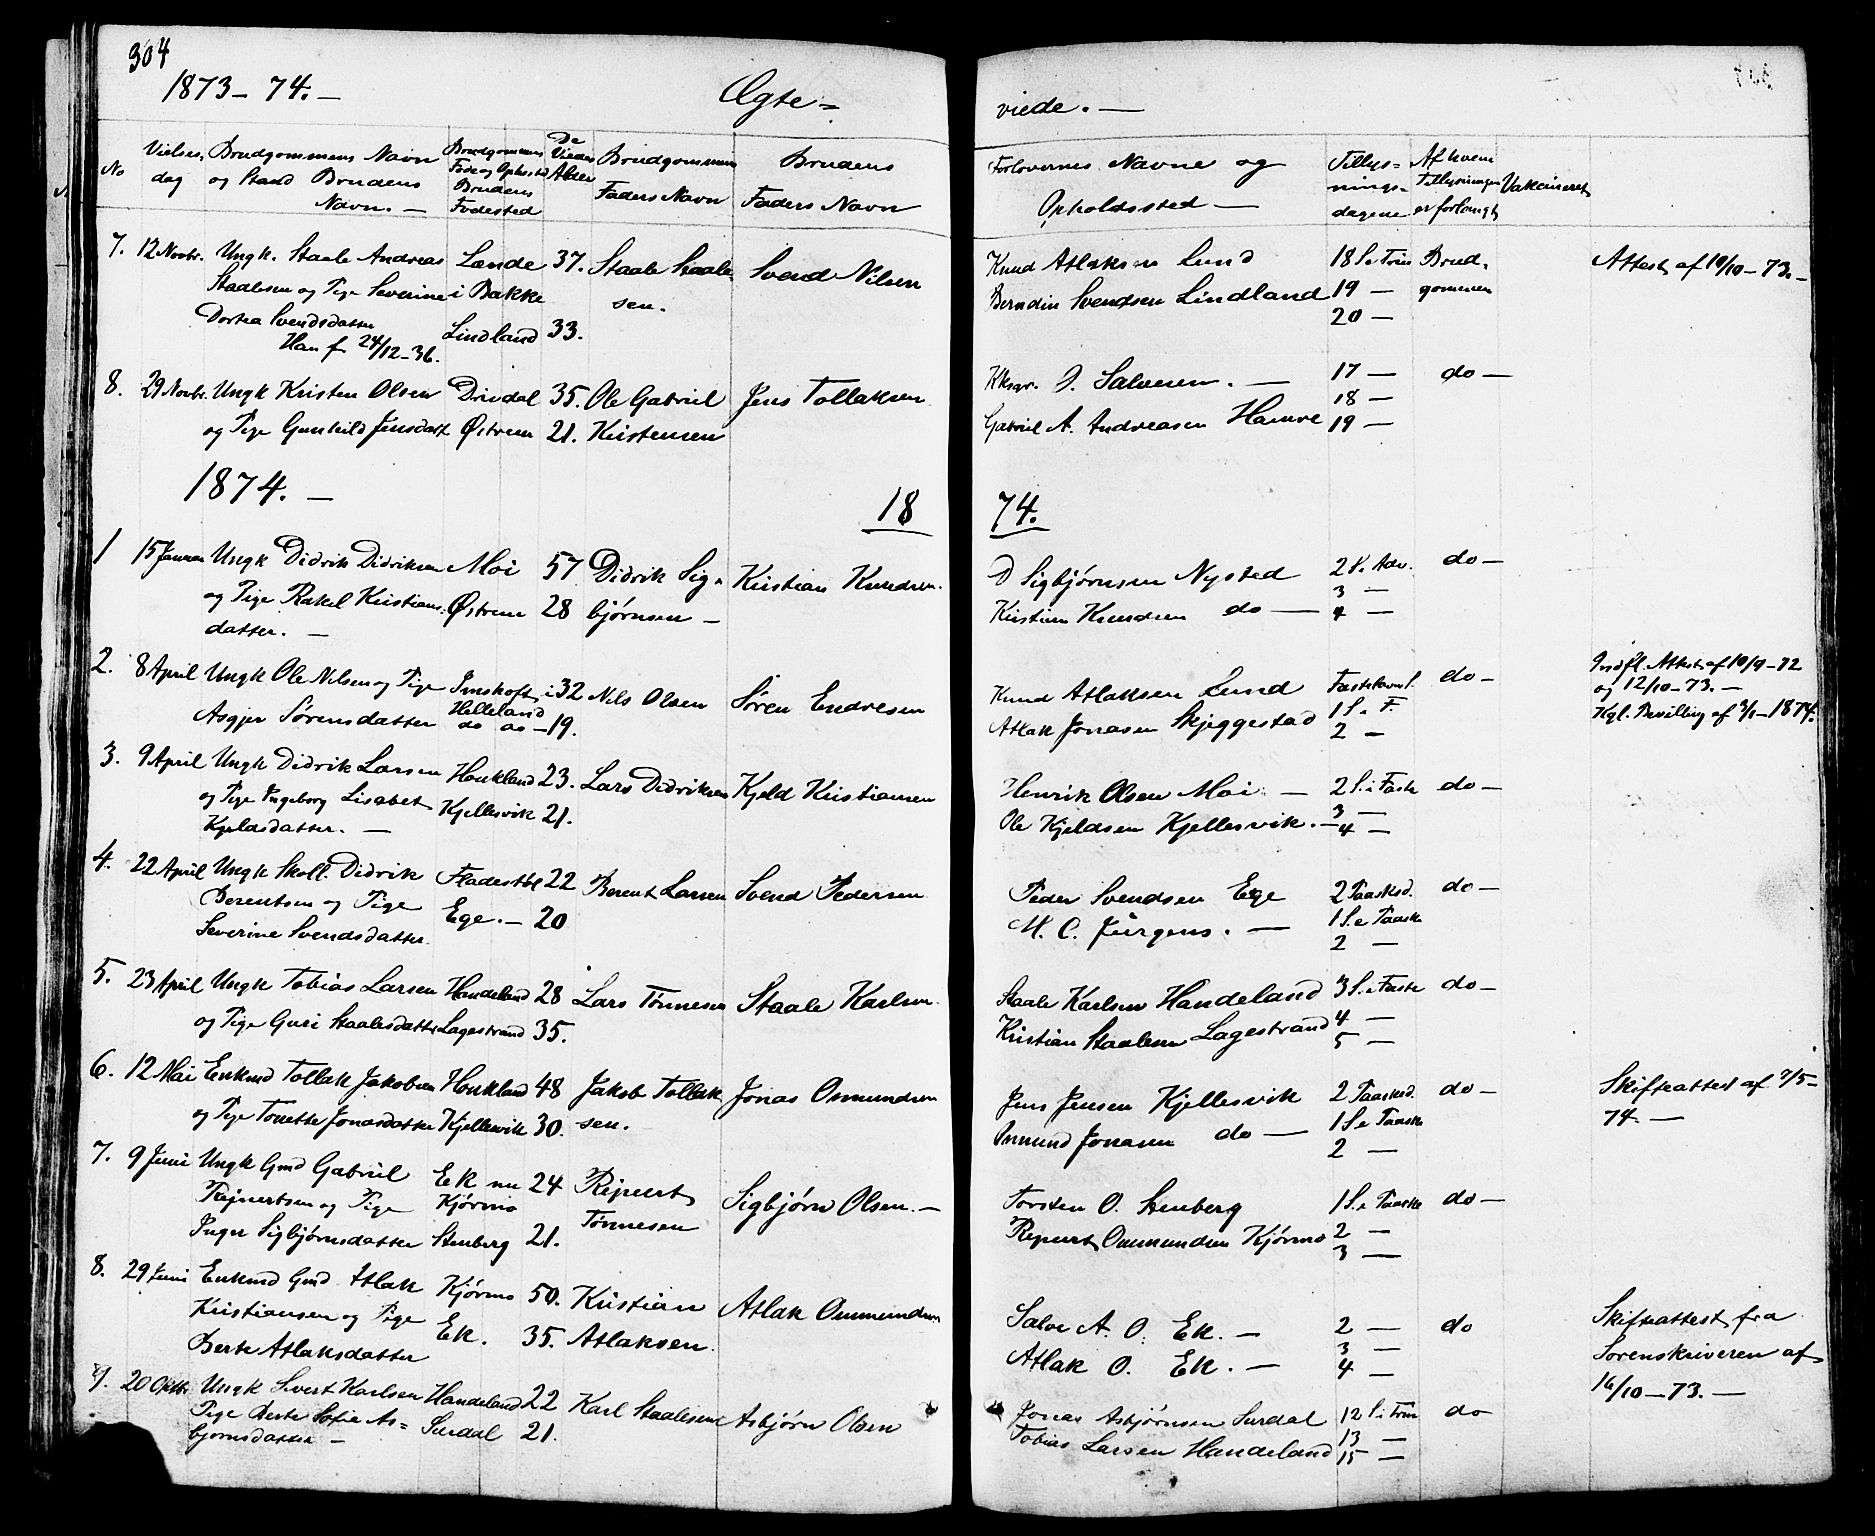 304
1873 - 74. -
Ægte =
viede. -
No
Vielses, dag
Brudgommens Navn og Stand Brudens Navn. -
Brudgommens Føde og Opholdssted Brudens Fødested
De Viedes Alder
Brudgommens Faders Navn
Brudens Faders Navn
Forlovernes Navne og Opholdssted -
Tillys= nings= dagene
Af hvem Tillysningen er forlangt
Vakcineret
7. 12 Novbr. Ungk. Staale Andreas Lande 37. Staale Staale Svend Nilsen
Staalesen og Pige Severine i Bakke sen.
Dortea Svendsdatter Lindland 33.
Han f. 24/12-36.
Knud Atlaksen Lund 18 S. e Trin Brud, Attest af 10/10 - 73. -
Berndin Svendsen Lindland 19 - gommen
20 -
8. 29 Novbr. Ungk Kristen Olsen Drivdal 35. Ole Gabriel Jens Tollaksen
og Pige Gunhild Jensdatt Østrem 21. Kristensen
Kksgr. O. Salvesen. - 17 - do -
18 -
Gabriel A. Andreasen Hamre 19 -
1874. -
18 74.
1 15 Januar Ungk Didrik Didriksen Moi 57 Didrik Sig= Kristian Knudsen.
og Pige Rakel Kristians. Østrem 28 bjørnsen -
datter. -
D Sigbjørnsen Nysted 2 S. Adv. do -
3 -
Kristian Knudsen do - 4 -
2. 8 April Ungk Ole Nilsen og Pige i 32 Nils Olsen Søren Endresen
Helleland
Asgjer Sørensdatter do do - 19.
Knud Atlaksen Lund Fastelavns S. do -
Atlak Jonasen Skjeggestad 1 S. i F.
2 -
Indfl. Attest af 10/9 - 72
og 12/10 - 73. -
Kgl. Bevilling af 3/1 - 1874.
3. 9 April Ungk Didrik Larsen Houkland 23. Lars Didriksen Kjeld Kristiansen
og Pige Ingeborg Lisabet Kjellesvik 21.
Kjeldsdatter. -
Henrik Olsen Moi. - 2 S. i Faste do -
3 -
Ole Kjeldsen Kjellesvik. - 4 -
4. 22 April Ungk Skoll. Didrik 22 Berent Larsen Svend Pedersen
Berentsen og Pige Ege. - 20
Severine Svendsdatter.
Peder Svendsen Ege 2 Paasked. do -
M. C. Jürgens. - 1 S. e Paaske
2 -
5. 23 April Ungk Tobias Larsen Handeland 28 Lars Tønnesen Staale Karlsen.
og Pige Guri Staalesdatter Lagestrand 35.
Staale Karlsen Handeland 3 S. i Faste do -
4 -
Kristian Staalesen Lagestrand 5 -
6. 12 Mai Enkmd Tollak Jakobsen Houkland 48 Jakob Tollak Jonas Osmundsen
og Pige Tonette Jonasdatter Kjellesvik 30. sen.
Jens Jensen Kjellesvik 2 Paasked. do - Skifteattest af 7/5 -
Osmund Jonasen do - 1 S. e Paaske 74. -
2 -
7. 9 Juni Ungk Gmd Gabriel Ek nu 24 Reinert Sigbjørn Olsen. -
Reinertsen og Pige Kjørmo Tønnesen
Inger Sigbjørnsdatter Stenberg 21.
Torsten O. Stenberg 1 S. e Paaske do -
Reinert Ommundsen Kjørmo 2 -
3 -
8. 29 Juni Enkmd Gmd Atlak Kjørmo 50. Kristian Atlak Ommundsen
Kristiansen og Pige Ek. 35. Atlaksen.
Berte Atlaksdatter
Salve A. O. Ek. - 2 - do Skifteattest fra
3 - Sorenskriveren af
Atlak O. Ek. - 4 - 16/10 - 73. -
9. 20 Oktbr Ungk Sivert Karlsen Handeland 22 Karl Staalesen Asbjørn Olsen
Pige Berte Sofie As= Surdal 21.
bjørnsdatter -
Jonas Asbjørnsen Surdal 12 S. i Trin do
13 -
Tobias Larsen Handeland 15 -